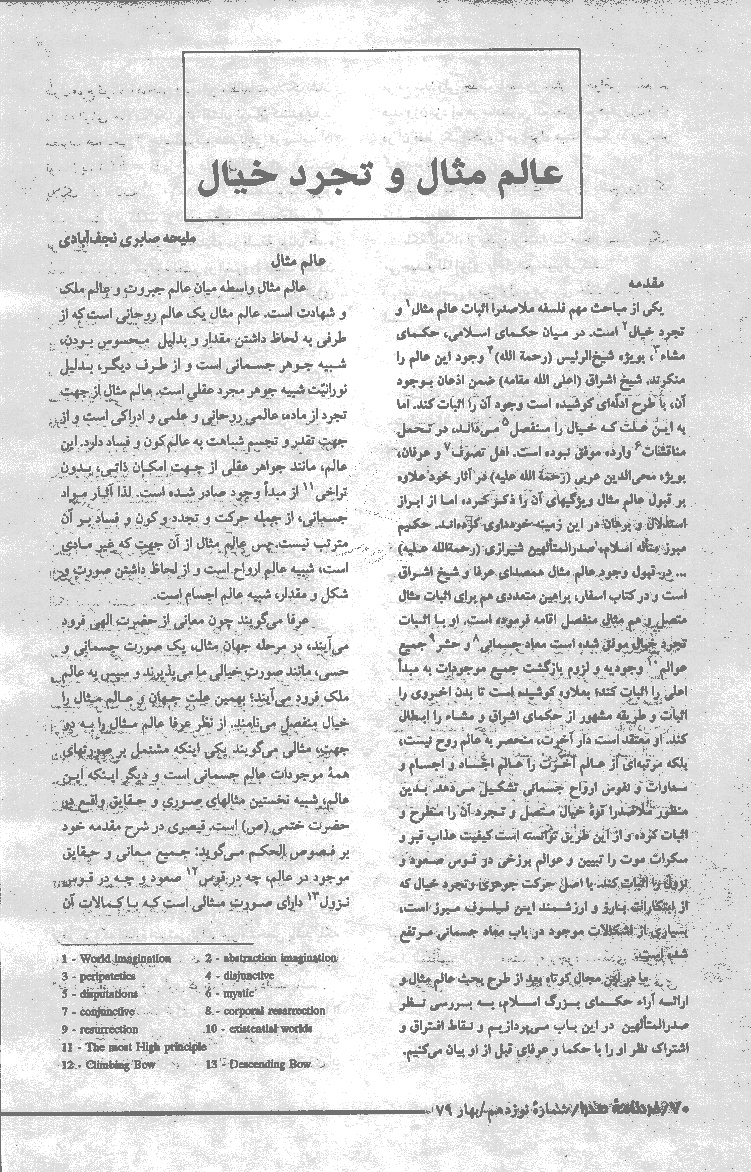 عالم مثال و تجرد خیال
ملیحه صابری نجف‌آبادی
مقدمه
یکی از مباحث مهم فلسفه ملاصدرا اثبات عالم مثال۱ و
تجرد خیال۲ است. در میان حکمای اسلامی، حکمای
مشاء۳، بویژه شیخ‌الرئیس (رحمة الله)۴ وجود این عالم را
منکرند. شیخ اشراق (اعلی الله مقامه) ضمن اذعان بوجود
آن، با طرح ادلّه‌ای کوشیده است وجود آن را اثبات کند. اما
به این علت که خیال را منفصل۵ می‌داند، در تحمل
مناقشات۶ وارده موفق نبوده است. اهل تصوف۷ و عرفان،
بویژه محی‌الدین عربی (رحمة الله علیه) در آثار خود علاوه
بر قبول عالم مثال ویژگیهای آن را ذکر کرده اما از ابراز
استدلال و برهان در این زمینه خودداری کرده‌اند. حکیم
مبرز متأله اسلام، صدرالمتألهین شیرازی (رحمةالله علیه)
... در قبول وجود عالم مثال همصدای عرفا و شیخ اشراق
است و در کتاب اسفار، براهین متعددی هم برای اثبات مثال
متصل و هم مثال منفصل اقامه فرموده است. او با اثبات
تجرد خیال موفق شده است معاد جسمانی۸ و حشر۹ جمیع
عوالم۱۰ وجودیه و لزوم بازگشت جمیع موجودات به مبدأ
اعلی را اثبات کند؛ بعلاوه کوشیده است تا بدن اخروی را
اثبات و طریقه مشهور از حکمای اشراق و مشاء را ابطال
کند. او معتقد است دار آخرت، منحصر به عالم روح نیست،
بلکه مرتبه‌ای از عالم آخرت را عالم اجساد و اجسام و
سماوات و نفوس ارواح جسمانی تشکیل می‌دهد. بدین
منظور ملاصدرا قوهٔ خیال متصل و تجرد آن را مطرح و
اثبات کرده و از این طریق توانسته است کیفیت عذاب قبر و
سکرات موت را تبیین و عوالم برزخی دو قوس صعود و
نزول را اثبات کند. با اصل حرکت جوهری و تجرد خیال که
از ابتکارات بارز و ارزشمند این فیلسوف مبرز است،
بسیاری از اشکالات موجود در باب معاد جسمانی مرتفع
شده است.
ما در این مجال کوتاه بعد از طرح بحث عالم مثال و
ارائه آراء حکمای بزرگ اسلام، به بررسی نظر
صدرالمتألهین در این باب می‌پردازیم و نقاط افتراق و
اشتراک نظر او را با حکما و عرفای قبل از او بیان می‌کنیم.
عالم مثال
عالم مثال واسطه میان عالم جبروت و عالم ملک
و شهادت است. عالم مثال یک عالم روحانی است که از
طرفی به لحاظ داشتن مقدار و بدلیل محسوس بودن،
شبیه جوهر جسمانی است و از طرف دیگر، بدلیل
نورانیّت شبیه جوهر مجرد عقلی است. عالم مثال از جهت
تجرد از ماده، عالمی روحانی و علمی و ادراکی است و از
جهت تقدر و تجسم شباهت به عالم کون و فساد دارد. این
عالم، مانند جواهر عقلی از جهت امکان ذاتی، بدون
تراخی۱۱ از مبدأ وجود صادر شده است. لذا آثار مواد
جسمانی، از جمله حرکت و تجدد و کون و فساد بر آن
مترتب نیست. پس عالم مثال از آن جهت که غیر مادی
است، شبیه عالم ارواح است و از لحاظ داشتن صورت و
شکل و مقدار، شبیه عالم اجسام است.
عرفا می‌گویند چون معانی از حضرت الهی فرود
می‌آیند، در مرحله جهان مثال، یک صورت جسمانی و
حسی، مانند صورت خیالی ما می‌پذیرند و سپس به عالم
ملک فرود می‌آیند؛ بهمین علت جهان و عالم مثال را
خیال منفصل می‌نامند. از نظر عرفا عالم مثال را به دو
جهت، مثالی می‌گویند یکی اینکه مشتمل بر صورتهای
همهٔ موجودات عالم جسمانی است و دیگر اینکه این
عالم، شبیه نخستین مثالهای صوری و حقایق واقع در
حضرت ختمی (ص) است. قیصری در شرح مقدمه خود
بر فصوص الحکم می‌گوید: جمیع معانی و حقایق
موجود در عالم، چه در قوس۱۲ صعود و چه در قوس
نزول۱۳ دارای صورت مثالی است که با کمالات آن
1 - World imagination 2 - abstraction imagination
3 - peripatetics 4 - disjunctive
5 - disputations 6 - mystic
7 - conjunctive 8 - corporal resarrection
9 - resurrection 10 - existential worlds
11 - The most High principle
12 - Climbing Bow 13 - Descending Bow
۷۰/خردنامهٔ صدرا/شمارهٔ نوزدهم/بهار ۷۹